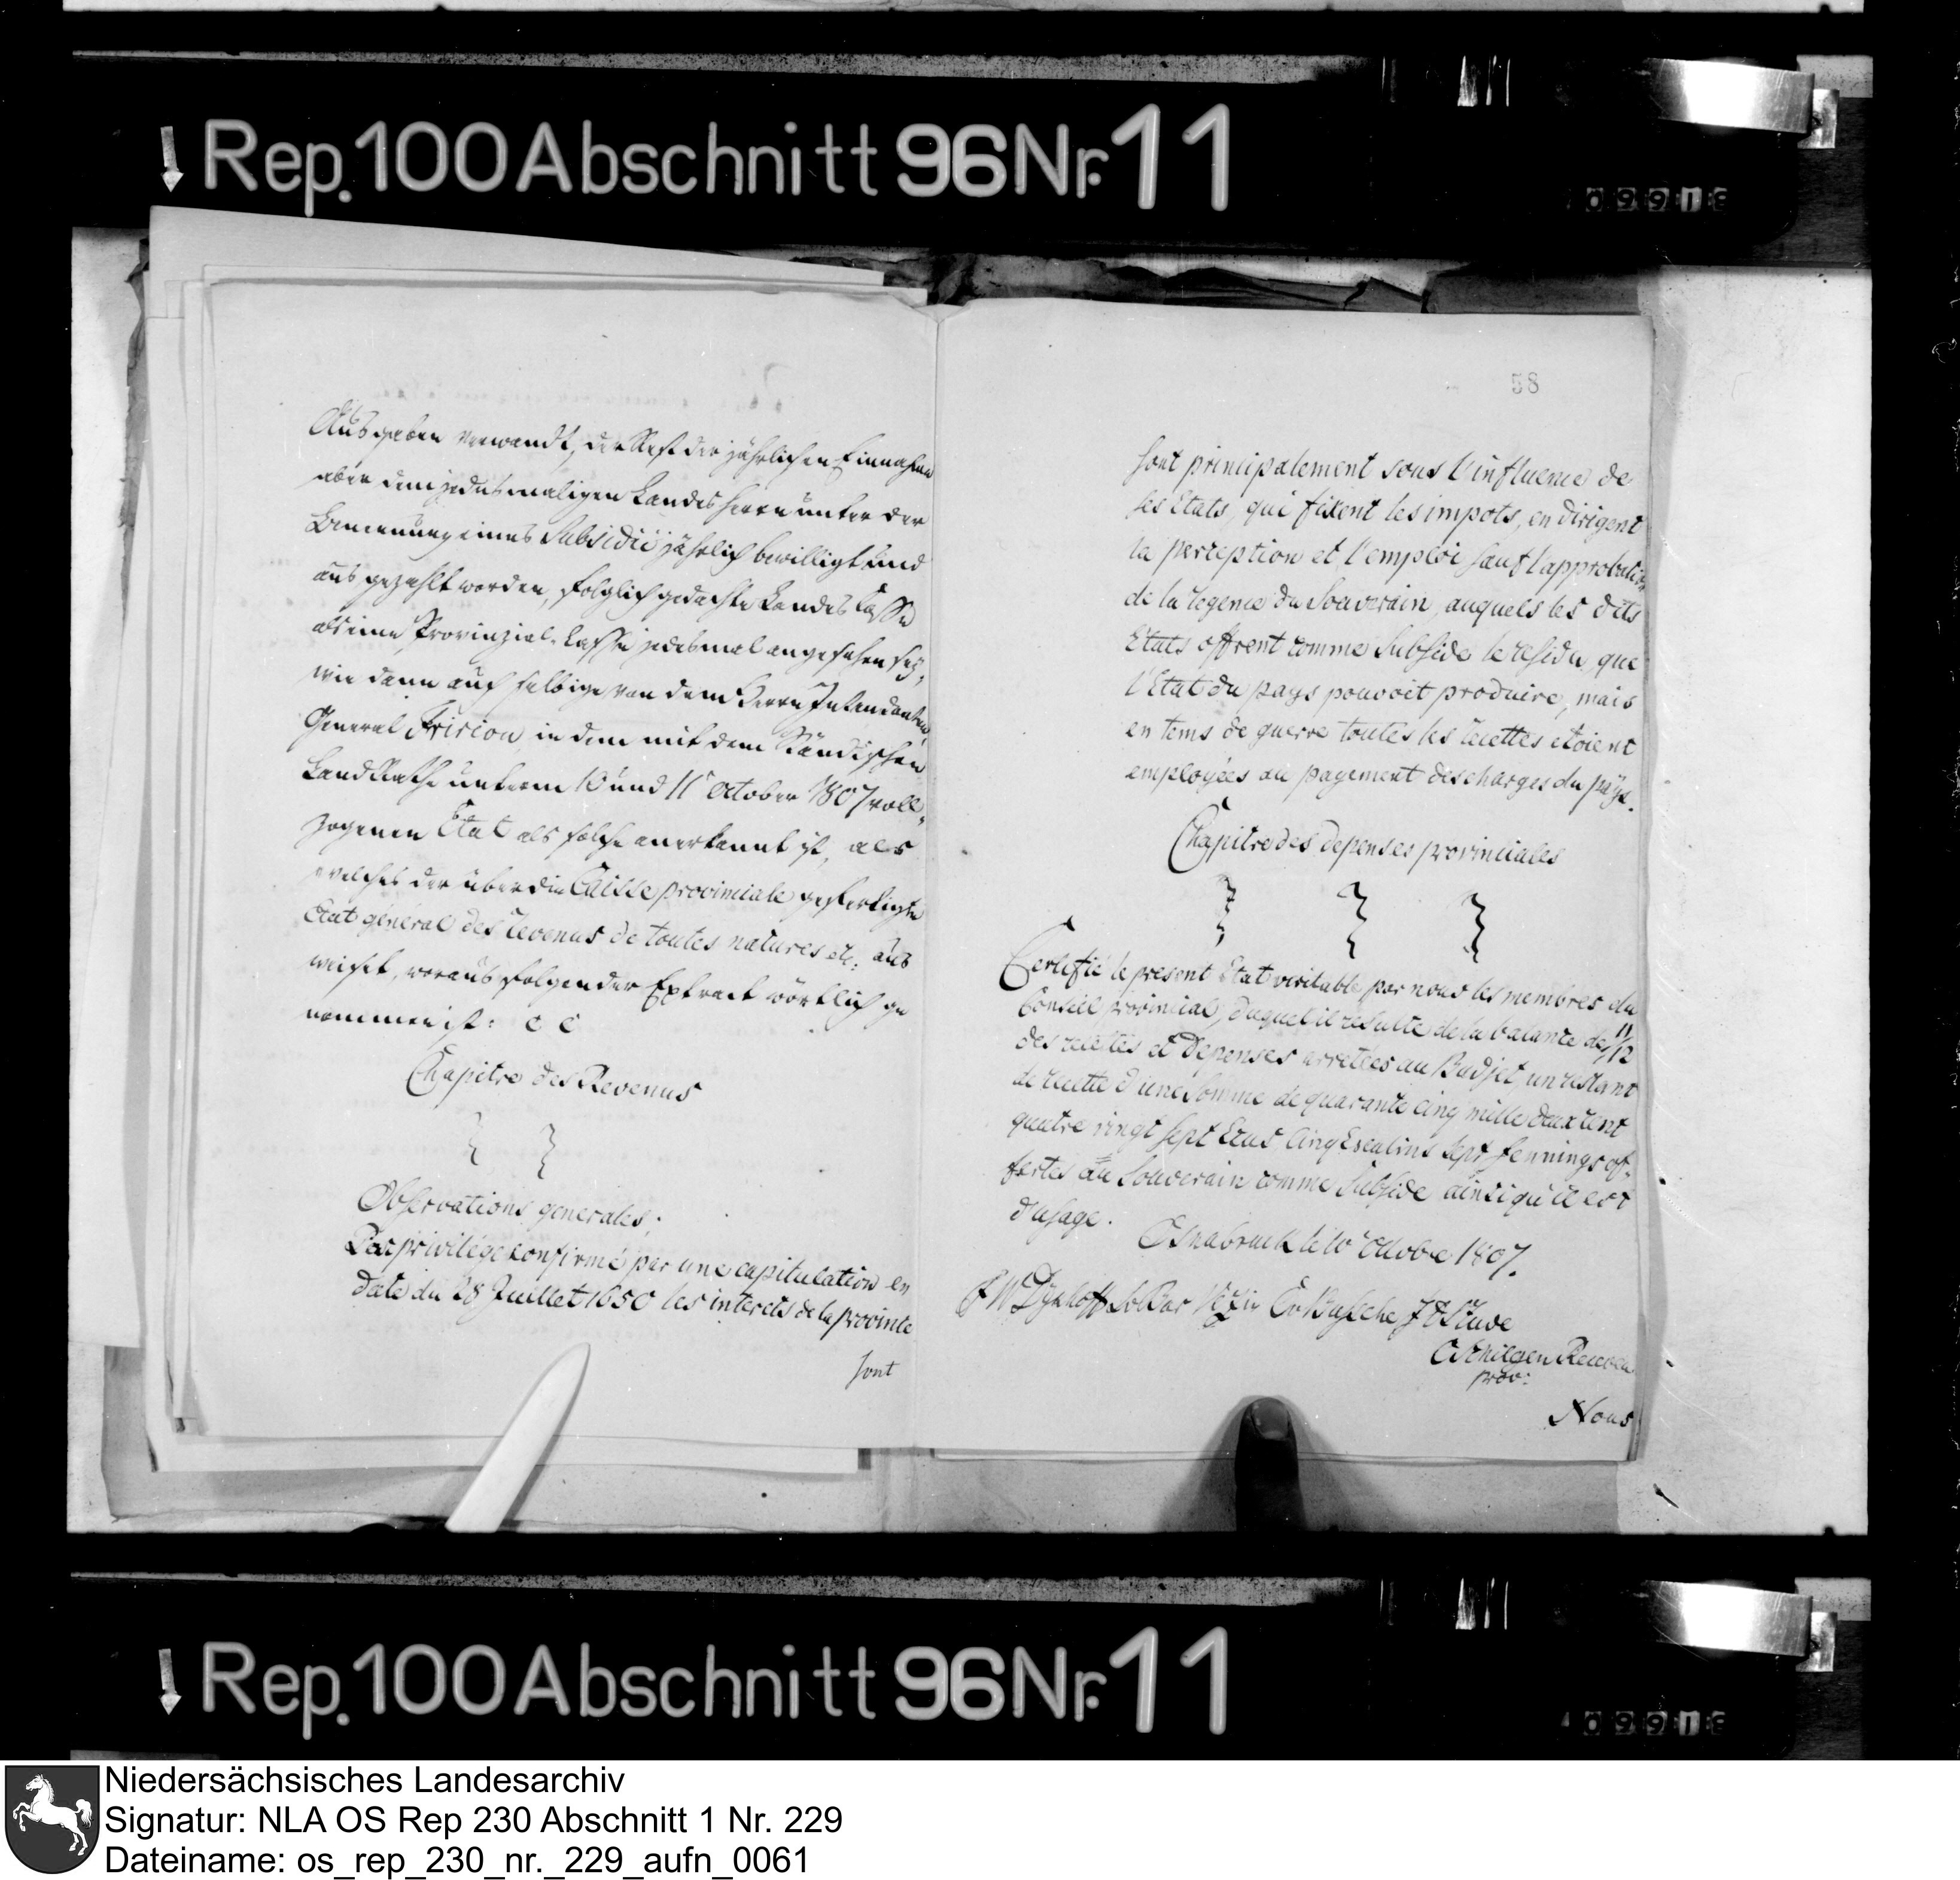 Rep. 100 Abschnitt 96 Nr. 11
Ausgaben verwandt, der Rest der jährlichen Einnahme
aber dem jedesmaligen Landesherrn unter der
Benennung eines Subsidii jährlich bewilligt und
ausgezahlt worden, folglich gedachte Landes Casse
als eine Provinzial-Casse jedesmal angesehen sey,
wie dann auch selbige von dem Herrn Intendanten
General Fririon in dem mit dem Ständischen
Land Rathe unterm 10 und 11t October 1807 voll„
zogenen Etat als solche anerkannt ist, als
welches der über die Caisse provinciale gefertigte
Etat général des revenus de toutes natures etc: aus
weiset, woraus folgender Extract wörtlich ge
nommen ist:
Chapitre des Revenus
Observations generales;
Par privilége confirmé par une capitulation en
date du 28 Juillet 1650 les interets de la province
sont
58
sont principalement sous l'influence de
ses Etats, qui fixent les impots, en dirigent
la perception et l'emploi sauf l'approbation
de la regence du Souverain, auquels les dits
Etats offrent comme Subside le residu, que
l'Etat du pays pouvoit produire, mais
en tems de guerre toutes les recettes etoient
employées au payement des charges du pays.
Chapitre des depenses provinciales
Certifié le present Etat veritable par nous les membres du
Conseil provincial, duquel il resulte de la balance de 11/12
des recettes et depenses arretées au Budjet un restant
de recette d'une Somme de quarante cinq mille deux cent
quatre vingt sept Ecus Cinq Escalins sept fennings of-
fertes au Souverain comme Subside ainsi qu'il est
d'usage.
Osnabruck le 10 Octobre 1807.
Bar Vezin Bussche Stuve
Receveur
prov:
Nous
Rep. 100 Abschnitt 96 Nr. 11
Niedersächsisches Landesarchiv
Signatur: NLA OS Rep 230 Abschnitt 1 Nr. 229
Dateiname: os_rep_230_nr._229_aufn_0061